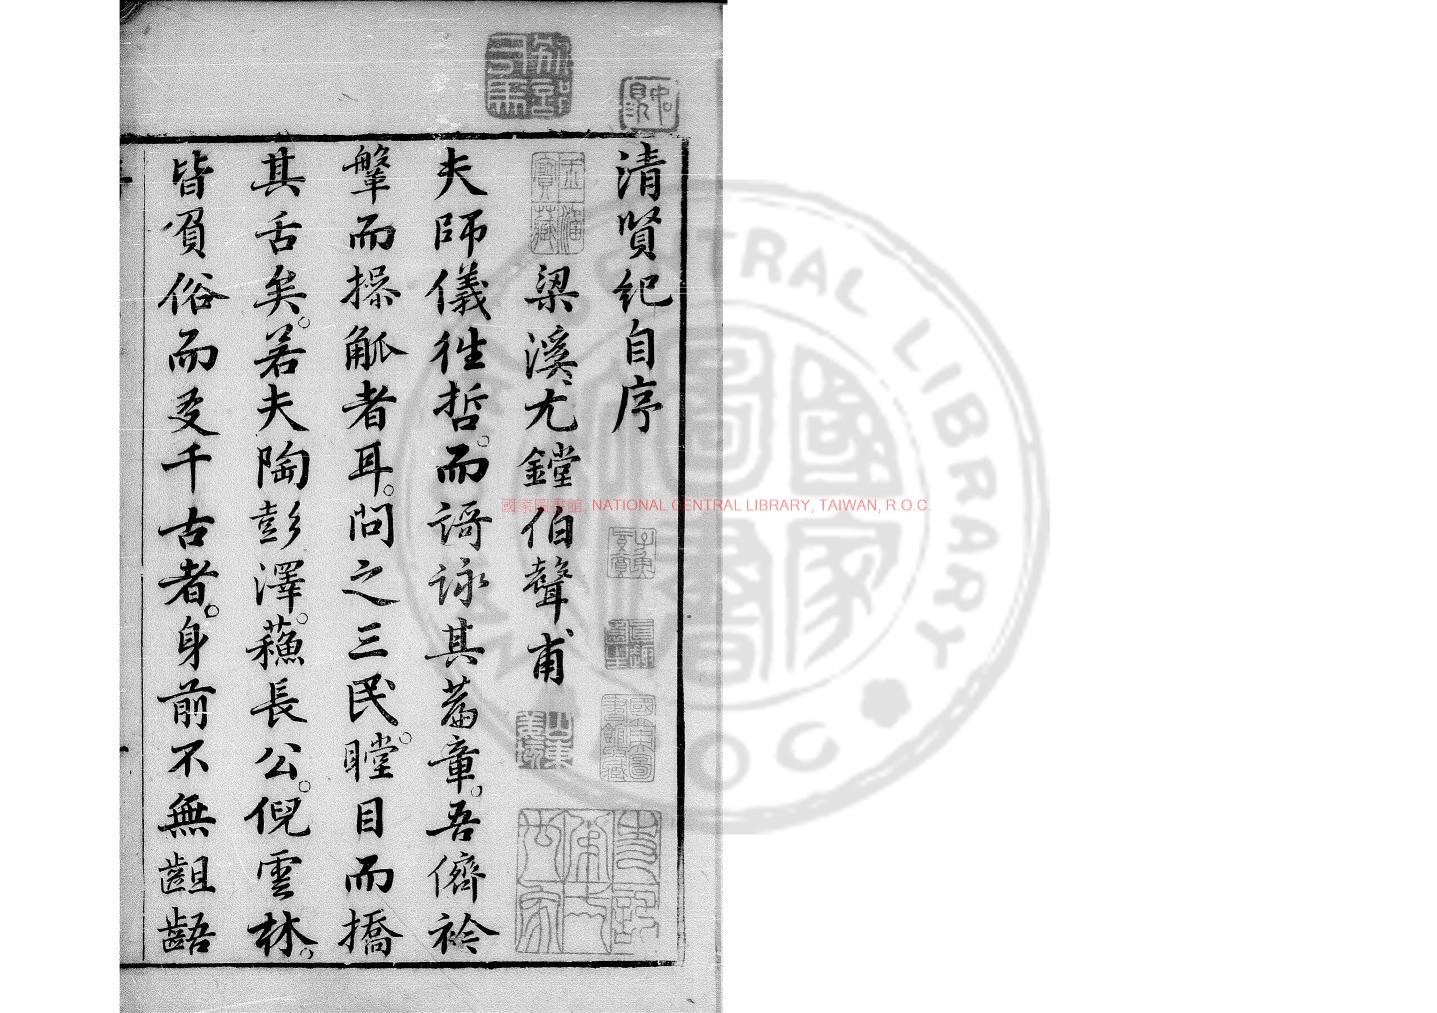 清賢紀自序
梁溪尤鏜伯聲甫
夫師儀徃哲。而謌詠其萹章。吾儕衿
鞶而操觚者耳。問之三民。瞠目而撟
其舌矣。若夫陶彭澤。蘓長公。倪雲林。
皆負俗而友千古者。身前不無齟齬
國家圖書館, NATIONAL CENTRAL LIBRARY, TAIWAN, R.O.C.